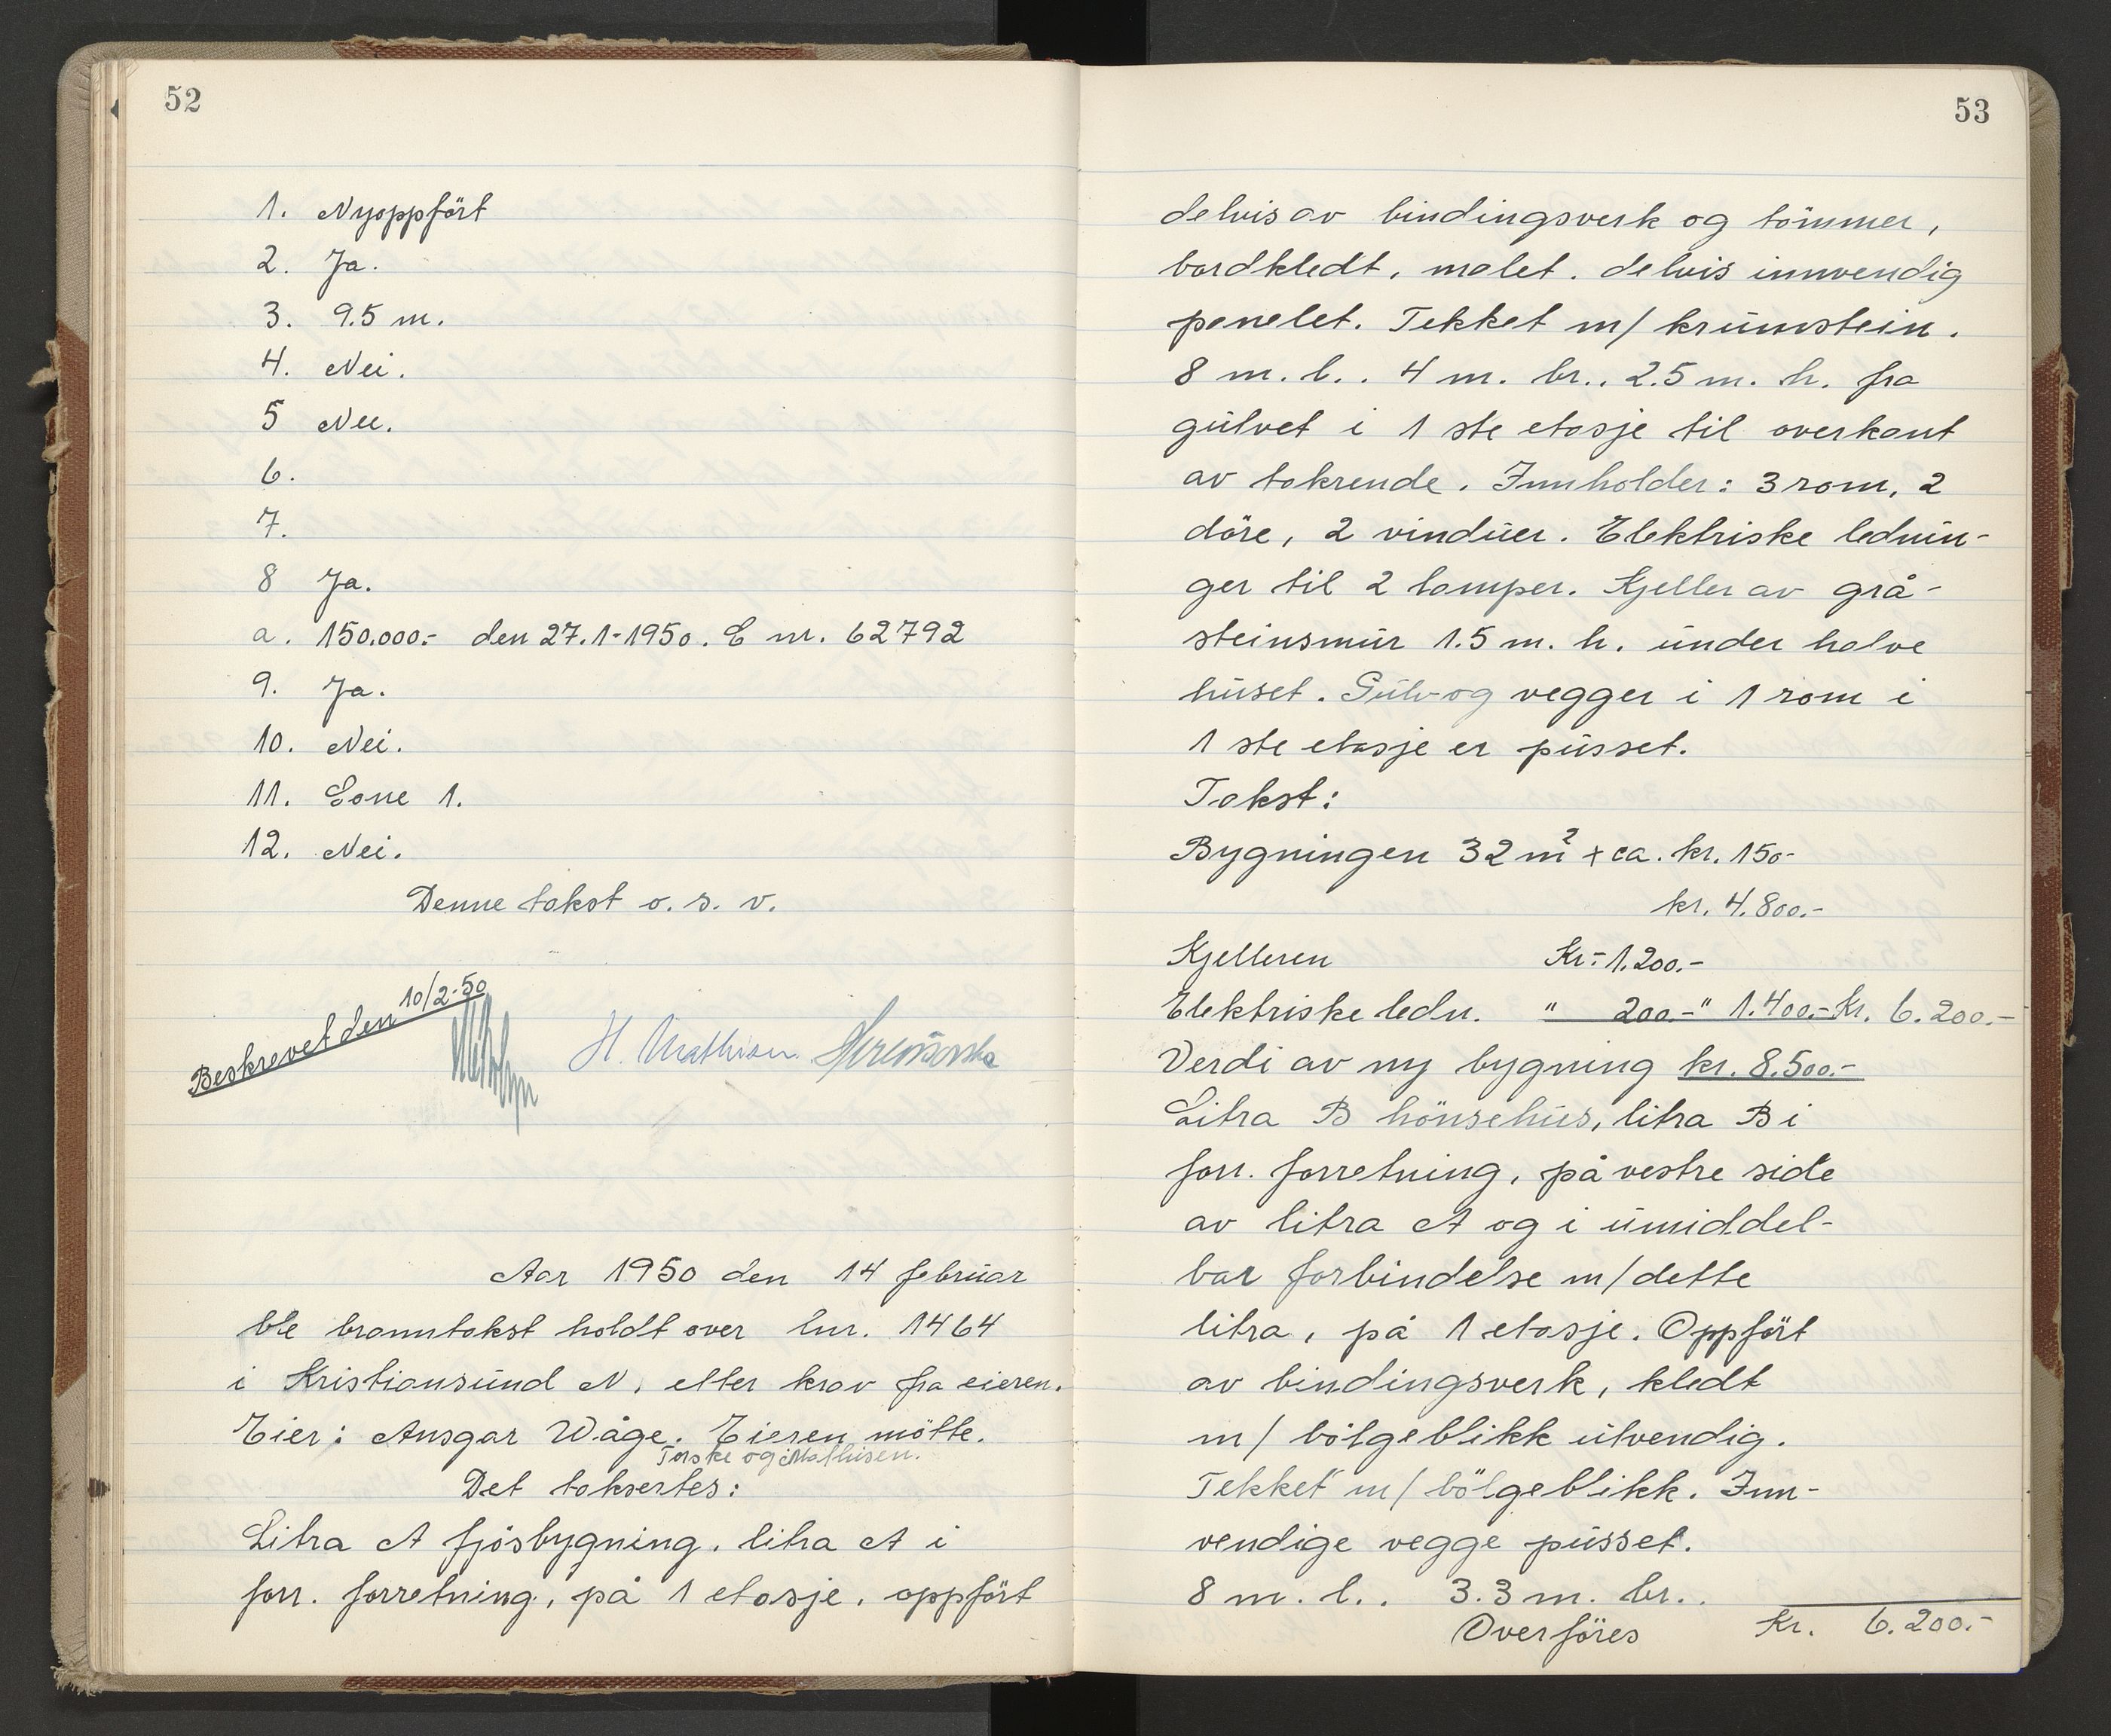 52
1. Nyoppført
2. Ja.
3. 9.5 m.
4. Nei.
5 Nei.
6.
7.
8 Ja.
a. 150.000.- den 27.1-1950. E nr. 62792
9. Ja.
10. Nei.
11. Sone 1.
12. Nei.
Denne takst o. s. v.
Beskrevet den 10/2-50
H. Mathisen
Aar 1950 den 14 februar
ble branntakst holdt over lnr. 1464
i Kristiansund N. etter krav fra eieren.
Eier: Ansgar Wåge. Eieren møtte.
Torske og Mathisen.
Det taksertes:
Litra A fjøsbygning. litra A i
forr. forretning, på 1 etasje, oppført
53
delvis av bindingsverk og tømmer,
bordkledt, malet. delvis innvendig
panelet. Tekket m/ krumstein.
8 m. l.. 4 m. br.. 2.5 m. h. fra
gulvet i 1 ste etasje til overkant
av takrende. Innholder: 3 rom, 2
døre, 2 vinduer. Elektriske lednin-
ger til 2 lamper. Kjeller av grå-
steinsmur 1.5 m. h. under halve
huset. Gulv og vegger i 1 rom i
1 ste etasje er pusset.
Takst:
Bygningen 32 m² x ca. kr. 150-
kr. 4.800.-
Kjelleren Kr.- 1.200.-
Elektriske ledn. " 200.- " 1.400.- Kr. 6.200.-
Verdi av ny bygning kr. 8.500.-
Litra B hønsehus, litra B i
forr. forretning, på vestre side
av litra A og i umiddel-
bar forbindelse m/ dette
litra, på 1 etasje. Oppført
av bindingsverk, kledt
m/ bølgeblikk utvendig.
Tekket m/ bølgeblikk. Inn-
vendige vegge pusset.
8 m. l.. 3.3 m. br..
Overføres Kr. 6.200.-